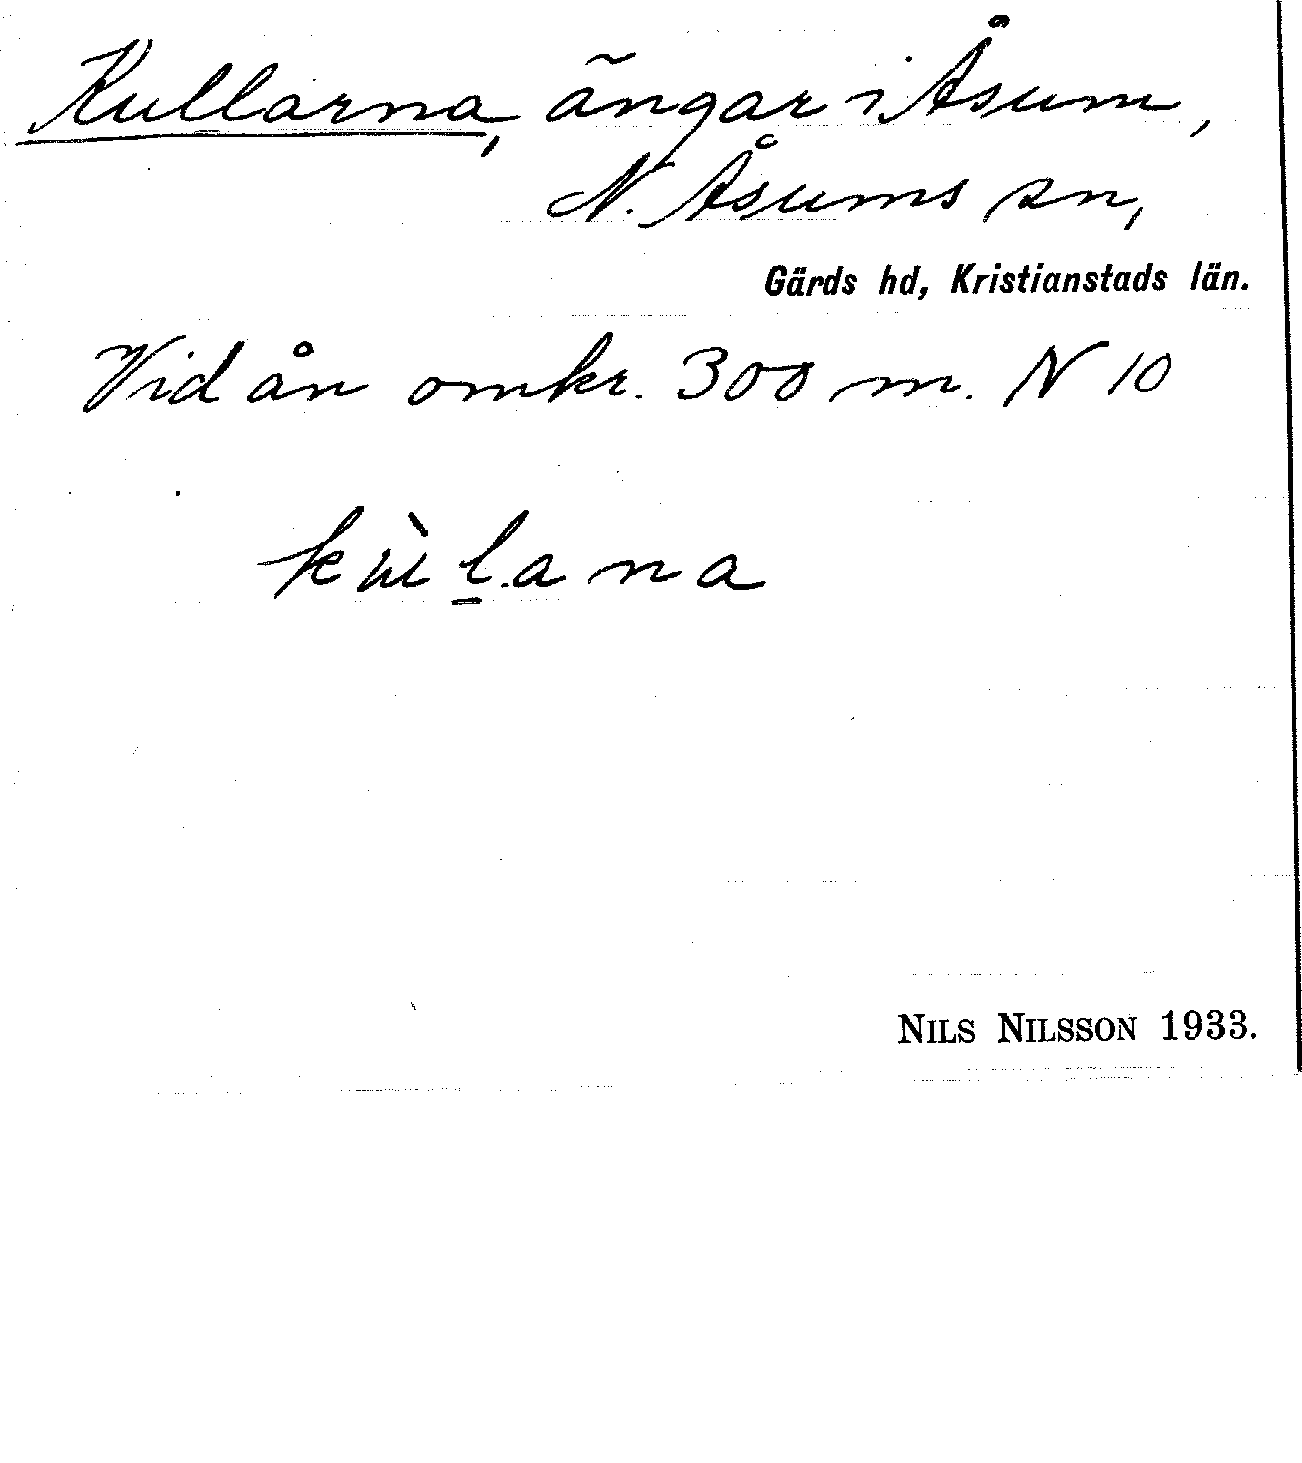 Kullarna, ängar i Åsum,
N. Åsums sn,
Gärds hd, Kristianstads län.
Vid ån omkr. 300 m. N 10
kùl̲ana
NILS NILSSON 1933.